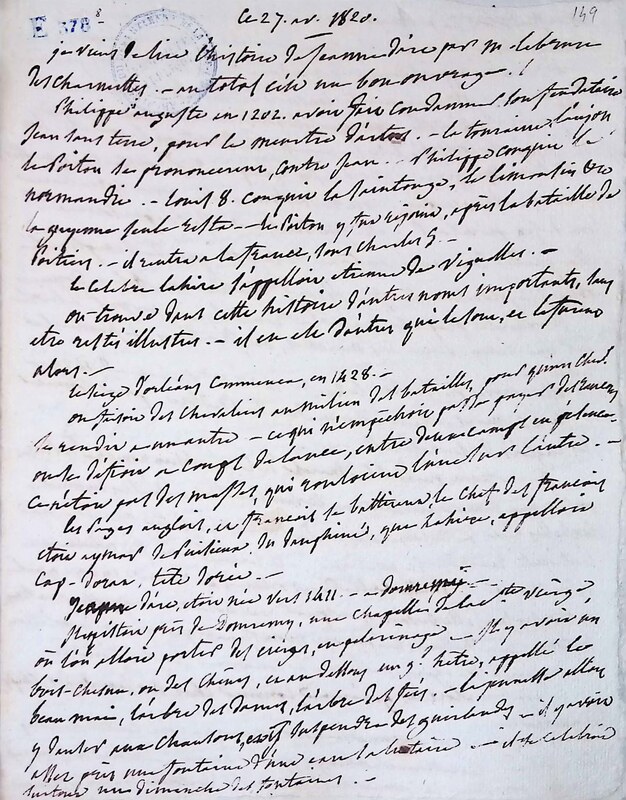 E 378 8
149
Ce 27. av. 1820.
je viens de lire l'histoire de jeanne d'arc par m. lebrun
des charmettes. — au total c'est un bon ouvrage. !
Philippe auguste en 1202. avoit fait condamner son feudataire
jean sans terre, pour le meurtre d'artus. — la touraine, l'anjou
le Poitou se prononcerent, contre jean. — Philippe conquit la
normandie. — louis 8. conquit la saintonge, le limousin &c
la guyenne seule resta — le Poitou y fut rejoint, après la bataille de
Poitiers. — il rentra a la france, sous charles 5. —
le celebre lahire s'appelloit etienne de vignolles. —
on trouve dans cette histoire d'autres noms importants, sans
etre restés illustres. — il en est d'autres qui le sont, et le furent
alors. —
le siege d'orléans commença, en 1428. —
on faisoit des chevaliers au milieu des batailles, pour qu'un chev.r
se rendit a un autre — ce qui n'empechoit pas de payer des
on se défioit a coups de lance, entre deux camps
ce n'étoit pas des masses, qui rouloient l'une sur l'autre. —
les pages anglois, et francois se battirent, le chef des francois
etoit aymar de Puisieux du dauphiné, que lahire, appelloit
cap-dorat, tête dorée. —
jeanne d'arc, etoit née vers 1411. — a domremy. —
il existoit près de Domremy, une chapelle de la ste vierge
où l'on alloit porter des cierges, en pelerinage — il y avoit un
bois-chesnu, ou des chênes, et au dessous un gd hêtre, appellé le
beau mai, l'arbre des dames, l'arbre des fées. — la jeunesse alloit
y danser aux chansons, et suspendre des guirlandes — il y avoit
assez près une fontaine d'une eau — il se celebroit
surtout un dimanche des fontaines. —